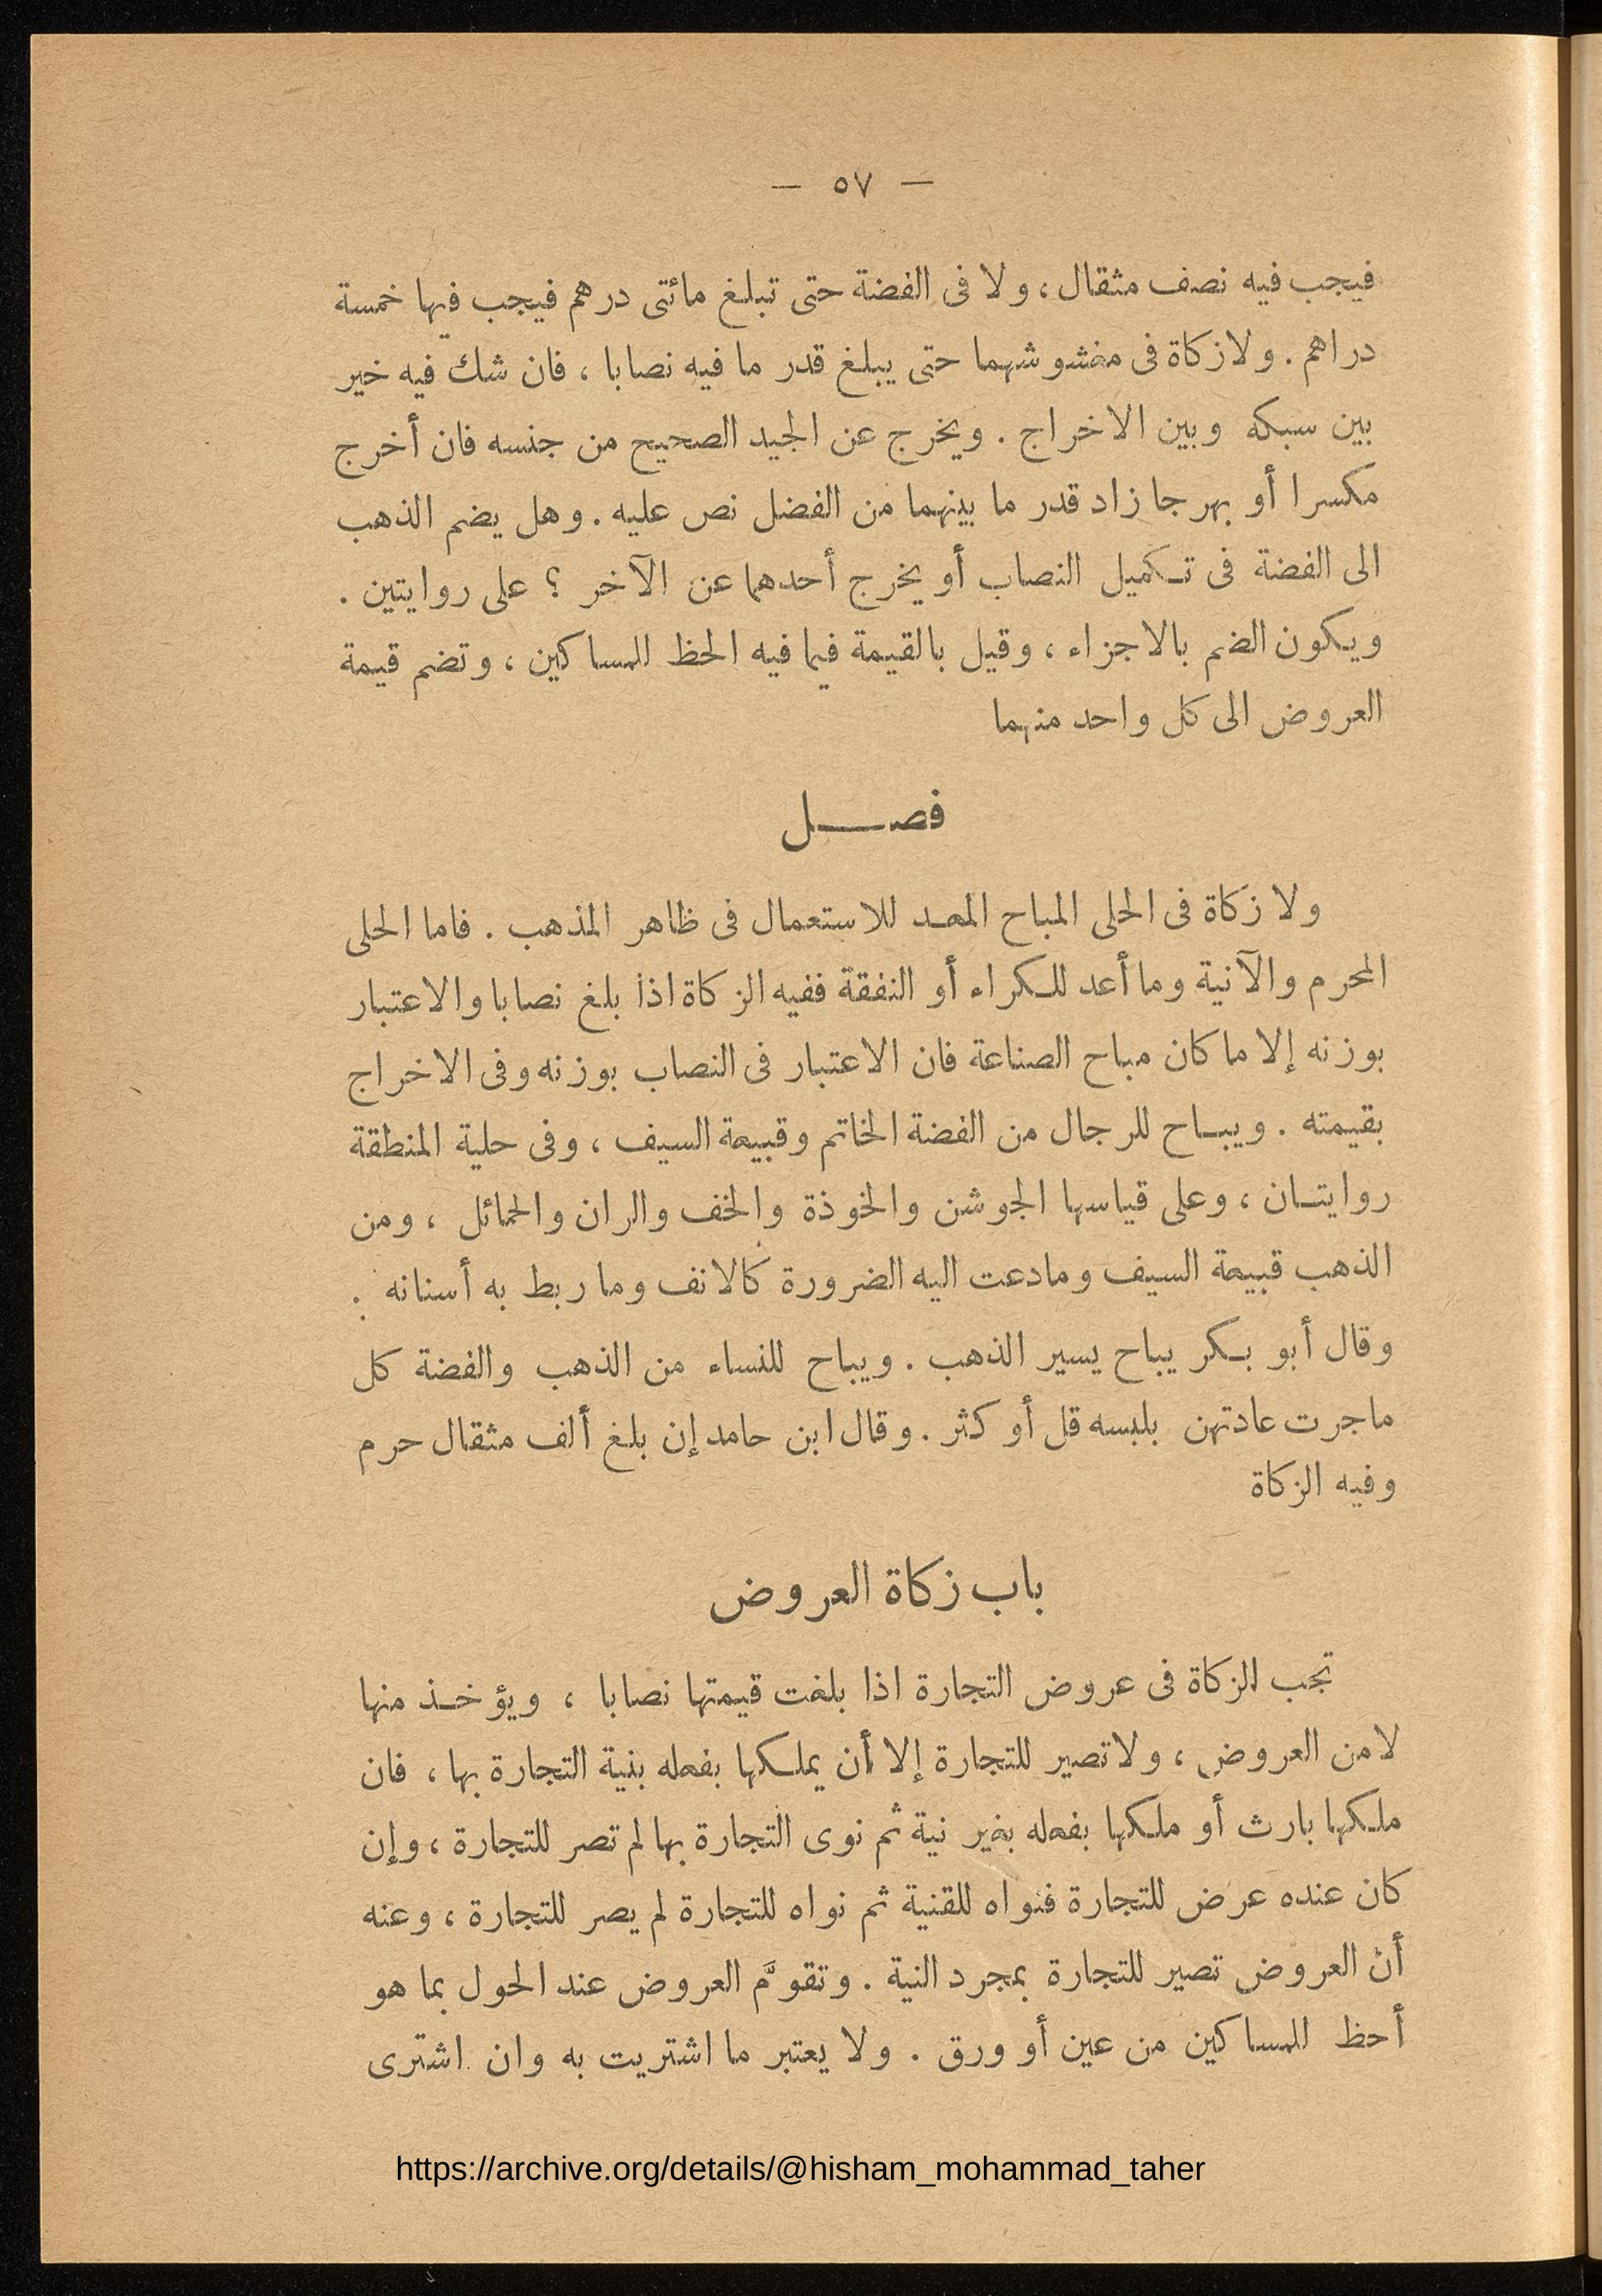 — ٥٧ —
فيجب فيه نصف مثقال، ولا فى الفضة حتى تبلغ مائتى درهم فيجب فيها خمسة
دراهم . ولا زكاة فى مغشوشهما حتى يبلغ قدر ما فيه نصابا ، فان شك فيه خير
بين سبكه وبين الاخراج . ويخرج عن الجيد الصحيح من جنسه فان أخرج
مكسرا أو بهرجا زاد قدر ما بينهما من الفضل نص عليه . وهل يضم الذهب
الى الفضة فى تكميل النصاب أو يخرج أحدهما عن الآخر ؟ على روايتين .
ويكون الضم بالاجزاء ، وقيل بالقيمة فيما فيه الحظ للمساكين ، وتضم قيمة
العروض الى كل واحد منهما
فصل
ولا زكاة فى الحلى المباح المعد للاستعمال فى ظاهر المذهب . فاما الحلى
المحرم والآنية وما أعد للكراء أو النفقة ففيه الزكاة اذا بلغ نصابا والاعتبار
بوزنه إلا ما كان مباح الصناعة فان الاعتبار فى النصاب بوزنه وفى الاخراج
بقيمته . ويباح للرجال من الفضة الخاتم وقبيعة السيف ، وفى حلية المنطقة
روايتان ، وعلى قياسها الجوشن والخوذة والخف والران والحمائل ، ومن
الذهب قبيعة السيف وما دعت اليه الضرورة كالانف وما ربط به أسنانه .
وقال أبو بكر يباح يسير الذهب . ويباح للنساء من الذهب والفضة كل
ماجرت عادتهن بلبسه قل أو كثر . وقال ابن حامد إن بلغ ألف مثقال حرم
وفيه الزكاة
باب زكاة العروض
تجب الزكاة فى عروض التجارة اذا بلغت قيمتها نصابا ، ويؤخذ منها
لا من العروض ، ولا تصير للتجارة إلا أن يملكها بفعله بنية التجارة بها ، فان
ملكها بارث أو ملكها بفعله بغير نية ثم نوى التجارة بها لم تصر للتجارة ، وإن
كان عنده عرض للتجارة فنواه للقنية ثم نواه للتجارة لم يصر للتجارة ، وعنه
أن العروض تصير للتجارة بمجرد النية . وتقوَّم العروض عند الحول بما هو
أحظ للمساكين من عين أو ورق . ولا يعتبر ما اشتريت به وان اشترى
https://archive.org/details/@hisham_mohammad_taher